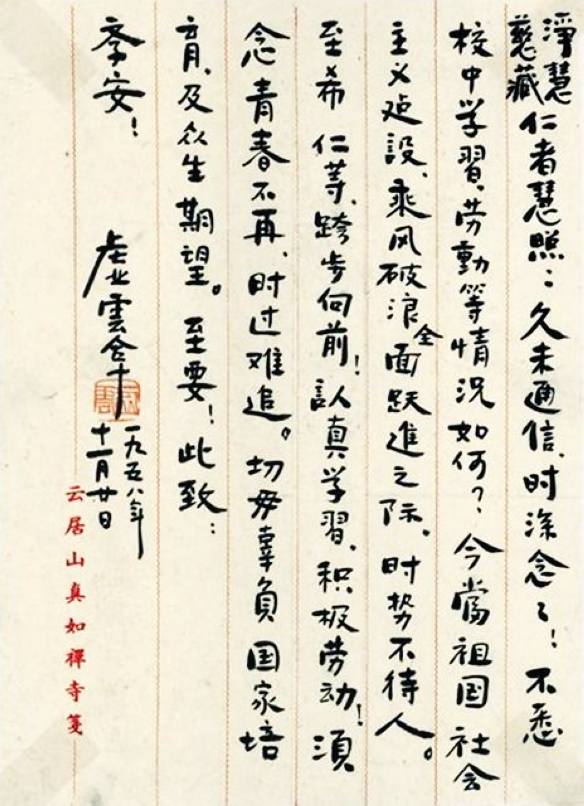 淨慧
慈藏仁者慧照：久未通信，时深念々！不悉
校中学習、劳動等情况如何？今當祖国社会
主义建設、乘风破浪全面跃進之际。时势不待人。
至希 仁等，跨步向前！認真学習、积极劳动！須
念青春不再、时过难追。切毋辜負 国家培
育，及众生期望。至要！此致：
孝安！
虚雲合十
一九五八年
十一月廿日
云居山真如禪寺箋